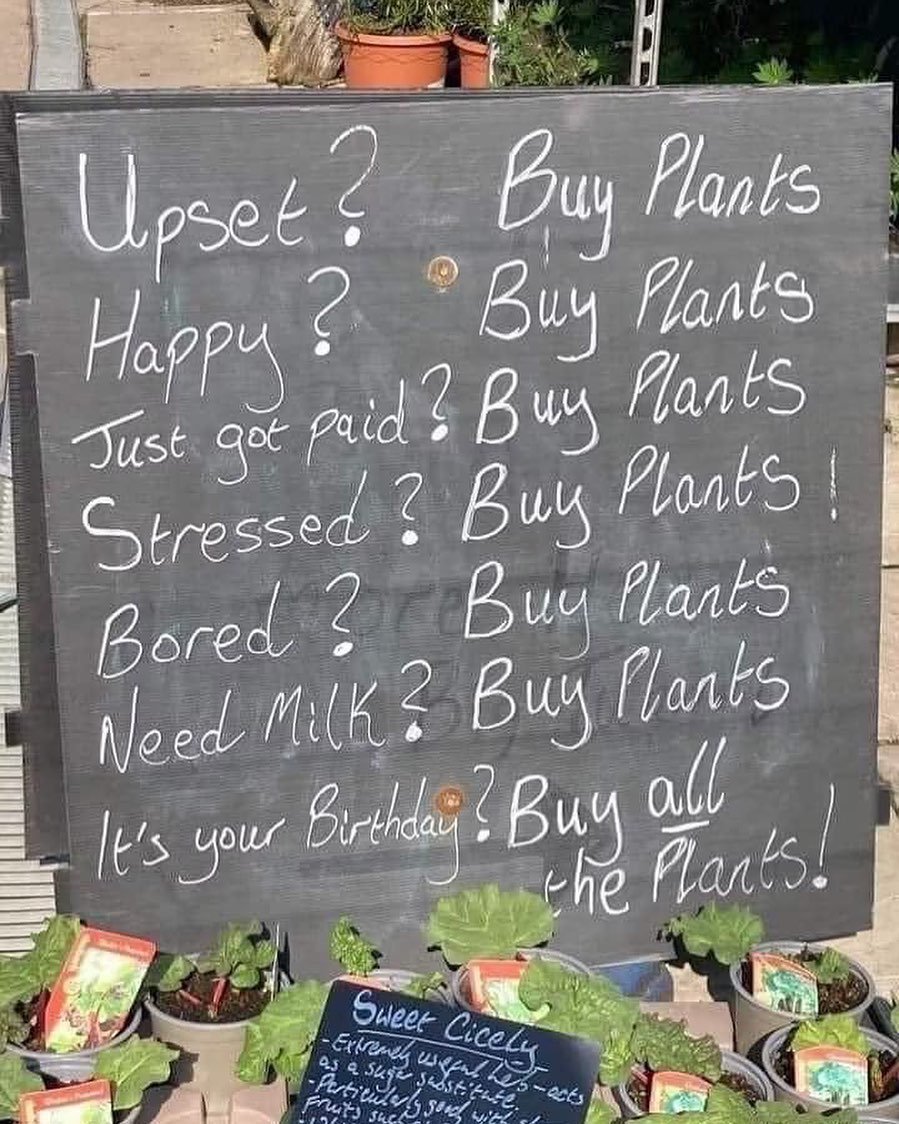 Upset? Buy Plants
Happy? Buy Plants
Just got paid? Buy Plants
Stressed? Buy Plants!
Bored? Buy Plants
Need Milk? Buy Plants
It's your Birthday? Buy all
the Plants!
Sweet Cicely
- Extremely useful herb - acts
as a sugar substitute.
- Particularly good with
fruits such